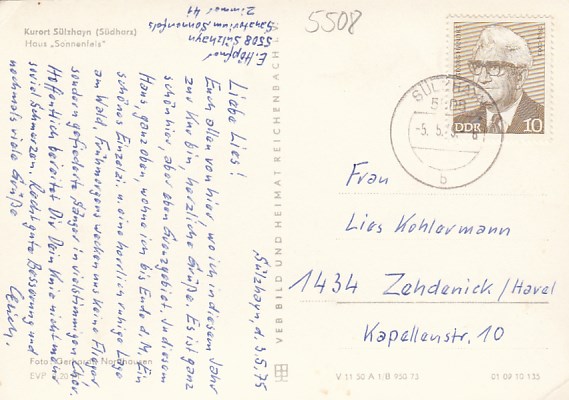 Kurort Sülzhayn (Südharz)
Haus „Sonnenfels"
E. Höpfner
5508 Sülzhayn
Sanatorium Sonnenfels
Zimmer 41
5508
Sülzhayn, d. 3.5.75
Liebe Lies!
Euch allen von hier, wo ich in diesem Jahr
zur Kur bin, herzliche Grüße. Es ist ganz
schön hier, aber eben Grenzgebiet. In diesem
Haus, ganz oben, wohne ich bis Ende d. M. Ein
schönes Einzelzi. u. eine herrlich ruhige Lage
am Wald, Frühmorgens wecken uns keine Flieger
sondern gefiederte Sänger in vielstimmigen Chor.
Hoffentlich bereitet Dir Dein Knie nicht mehr
soviel Schmerzen. Recht gute Besserung und
nochmals viele Grüße
Foto: Gerhard Nordhausen
EVP 0,20
VEB BILD UND HEIMAT REICHENBACH
SÜLZHAYN
5508
-5.5.75
b
DDR 10
Frau
Lies Kohlermann
1434 Zehdenick/Havel
Kapellenstr. 10
V 11 50 A 1/B 950 73
01 09 10 135